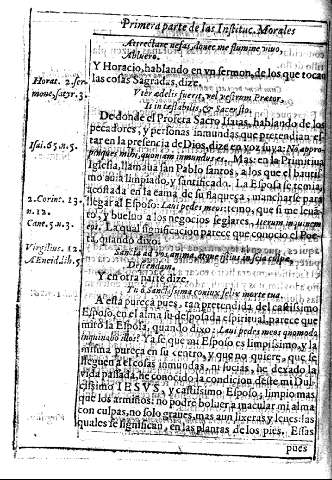 Primera parte de las Instituc. Morales
Attrectare nefas, donec me flumine vivo,
Abluero.
Y Horacio, hablando en vn sermon, de los que tocan
las cosas Sagradas, dize.
Horat. 2. ser-
mone, satyr. 3.
Vter ædilis fuerit, vel vestrum Prætor.
Is intestabilis, & Sacer sto.
De donde el Profeta Sacro Isaias, hablando de los
pecadores, y personas inmundas que pretendian es-
tar en la presencia de Dios, dize en voz suya: No apro-
Isai. 65. n. 5.
pinques mihi, quoniam inmundus es. Mas: en la Primitiua
Iglesia, llamaua san Pablo santos, a los que el bautis-
mo auia limpiado, y santificado. La Esposa se temia,
acostada en la cama de su flaqueza, mancharse para
2. Corint. 13.
n. 12.
llegar al Esposo: Laui pedes meos: temo, que si me leua-
to, y bueluo a los negocios seglares, iterum inquinem
Cant. 5. n. 3.
eos. La qual significacion parece que conocio el Poe-
ta, quando dixo:
Virgilius. 12.
Æneid. & lib. 5.
Sancta ad vos anima, atque istius inscia culpæ,
Descendam.
Y en otra parte dize.
Tu ò Sanctissima coniux felix morte tua.
A esta pureça pues, tan pretendida del castissimo
Esposo, en el alma su desposada espiritual, parece que
mirò la Esposa, quando dixo: Laui pedes meos quomodo
inquinabo illos? Ya se que mi Esposo es limpissimo, y la
misma pureça en su centro, y que no quiere, que se
lleguen a el cosas inmundas, ni sucias, he dexado la
vida passada, he conocido la condicion deste mi Dul-
cissimo IESVS, y castissimo Esposo, limpio mas
que los armiños: no podrè boluer a macular mi alma
con culpas, no solo graues, mas aun lixeras y leues: las
quales se significan, en las plantas de los pies. Essas
pues